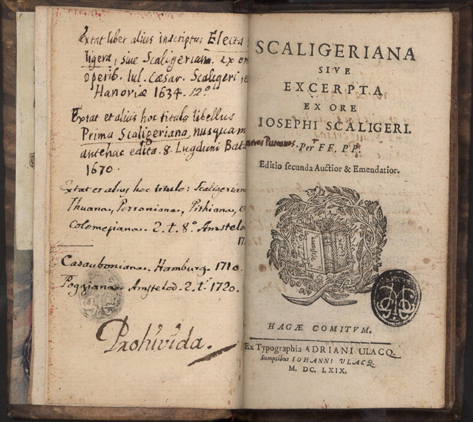 Extat liber alius inscriptus Electa
ligera, siue Scaligeriana, ex om
operib. Iul. Cæsar. Scaligeri,
Hanoviæ 1634. 12º
Extat et alius hoc titulo libellus
Prima Scaligeriana, nusquam
antehac edita. 8. Lugduni Bat.
1670.
Extat et alius hoc titulo: Scaligeriana
Thuana, Perroniana, Pithiana, e
Colomesiana. 2. t. 8º Amstelo
17
Casauboniana. Hamburg. 1710.
Poggiana. Amstelod. 2. t. 1720.
Prohivida.
SCALIGERIANA
SIVE
EXCERPTA
EX ORE
IOSEPHI SCALIGERI.
Per FF. PP.
Editio secunda Auctior & Emendatior.
HAGÆ COMITVM.
Ex Typographia ADRIANI ULACQ
Sumptibus IOHANNI ULACQ
M. DC. LXIX.